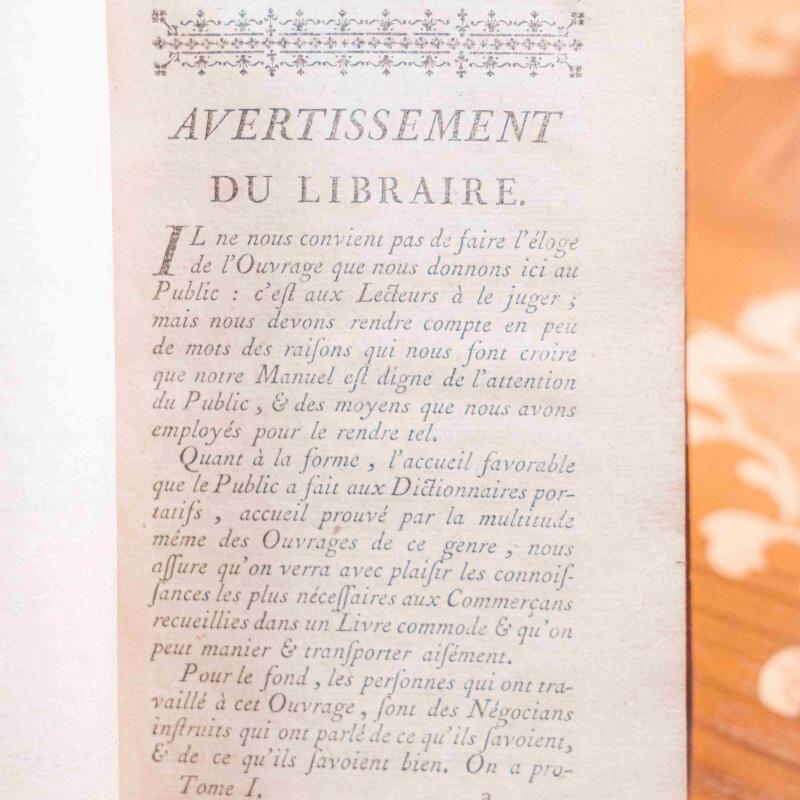 AVERTISSEMENT
DU LIBRAIRE.
IL ne nous convient pas de faire l'éloge
de l'Ouvrage que nous donnons ici au
Public : c'eſt aux Lecteurs à le juger ;
mais nous devons rendre compte en peu
de mots des raiſons qui nous font croire
que notre Manuel eſt digne de l'attention
du Public, & des moyens que nous avons
employés pour le rendre tel.
Quant à la forme, l'accueil favorable
que le Public a fait aux Dictionnaires por-
tatifs, accueil prouvé par la multitude
même des Ouvrages de ce genre, nous
aſſure qu'on verra avec plaiſir les connoiſ-
ſances les plus néceſſaires aux Commerçans
recueillies dans un Livre commode & qu'on
peut manier & tranſporter aiſément.
Pour le fond, les perſonnes qui ont tra-
vaillé à cet Ouvrage, ſont des Négocians
inſtruits qui ont parlé de ce qu'ils ſavoient,
& de ce qu'ils ſavoient bien. On a pro-
Tome I. a